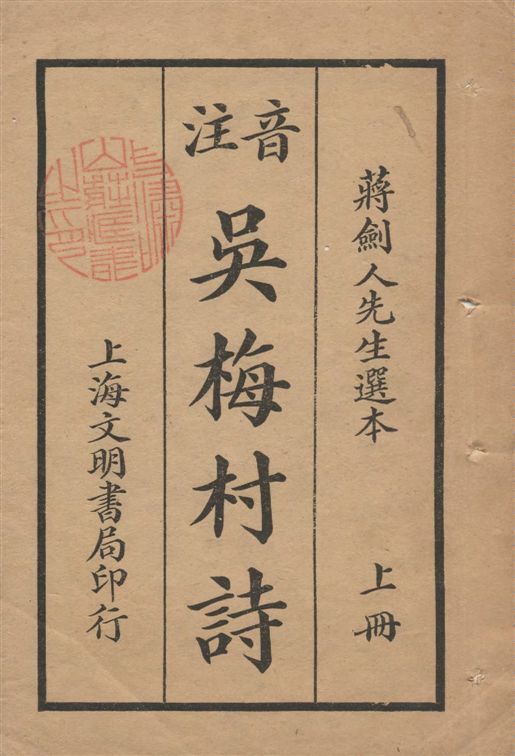 蔣劍人先生選本　上冊
音注
吳梅村詩
上海文明書局印行